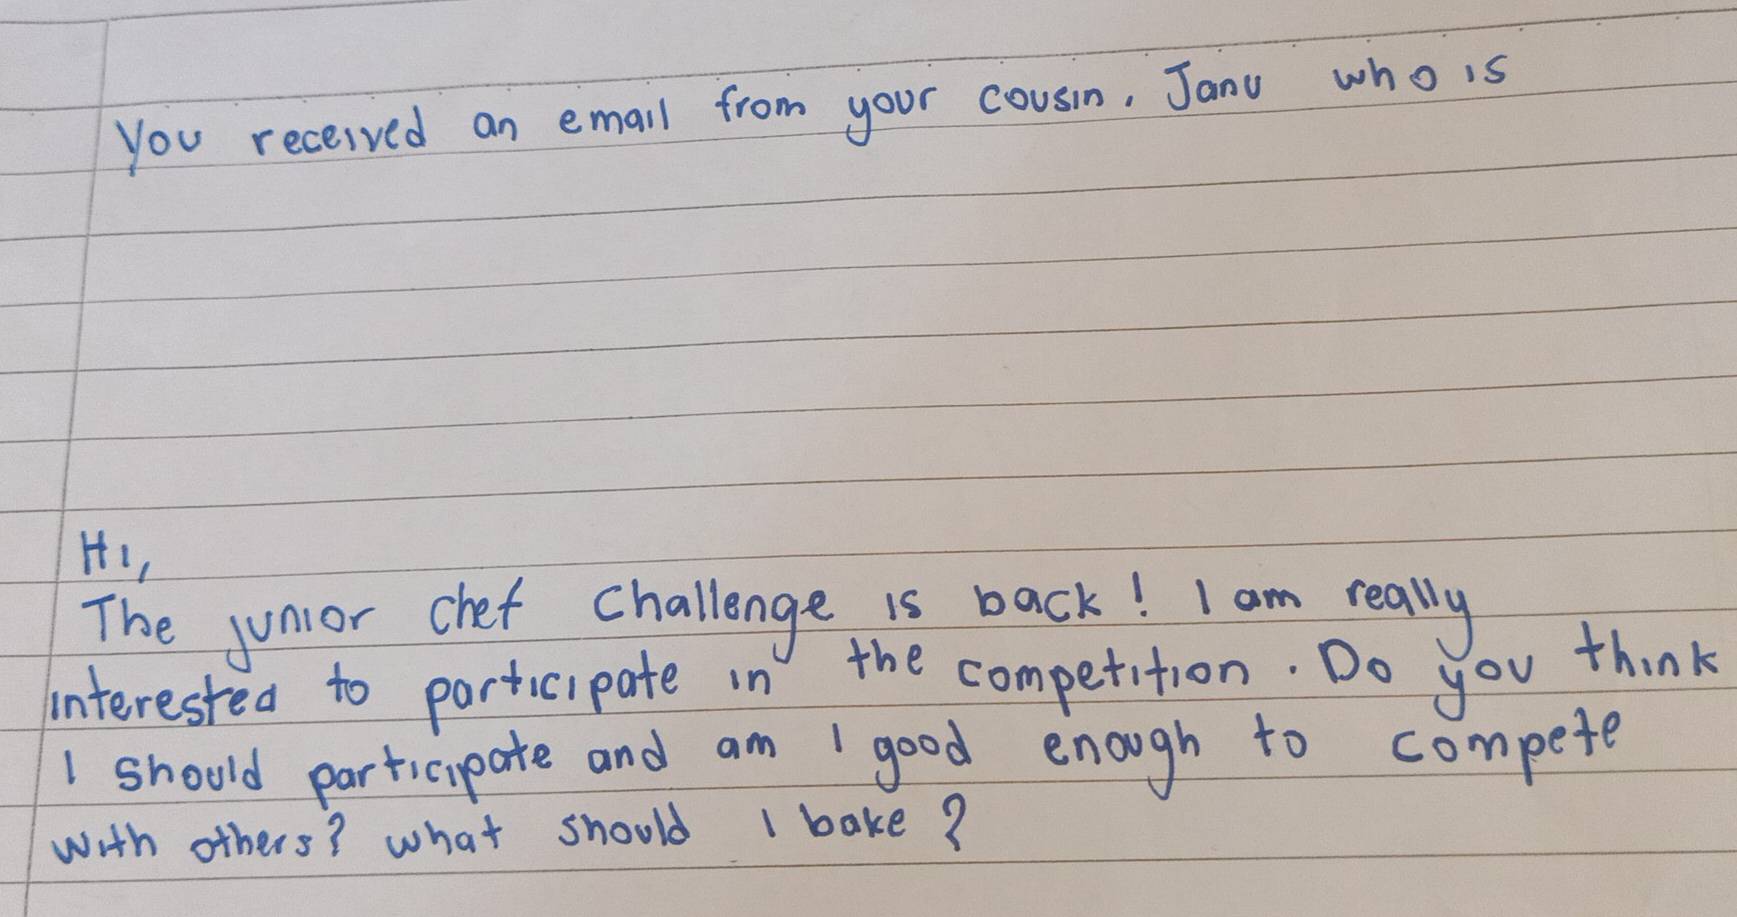 You received an email from your cousin, Janu who is
Hi,
The junior chef challenge is back! I am really
interested to participate in the competition. Do you think
I should participate and am I good enough to compete
with others? what should I bake?